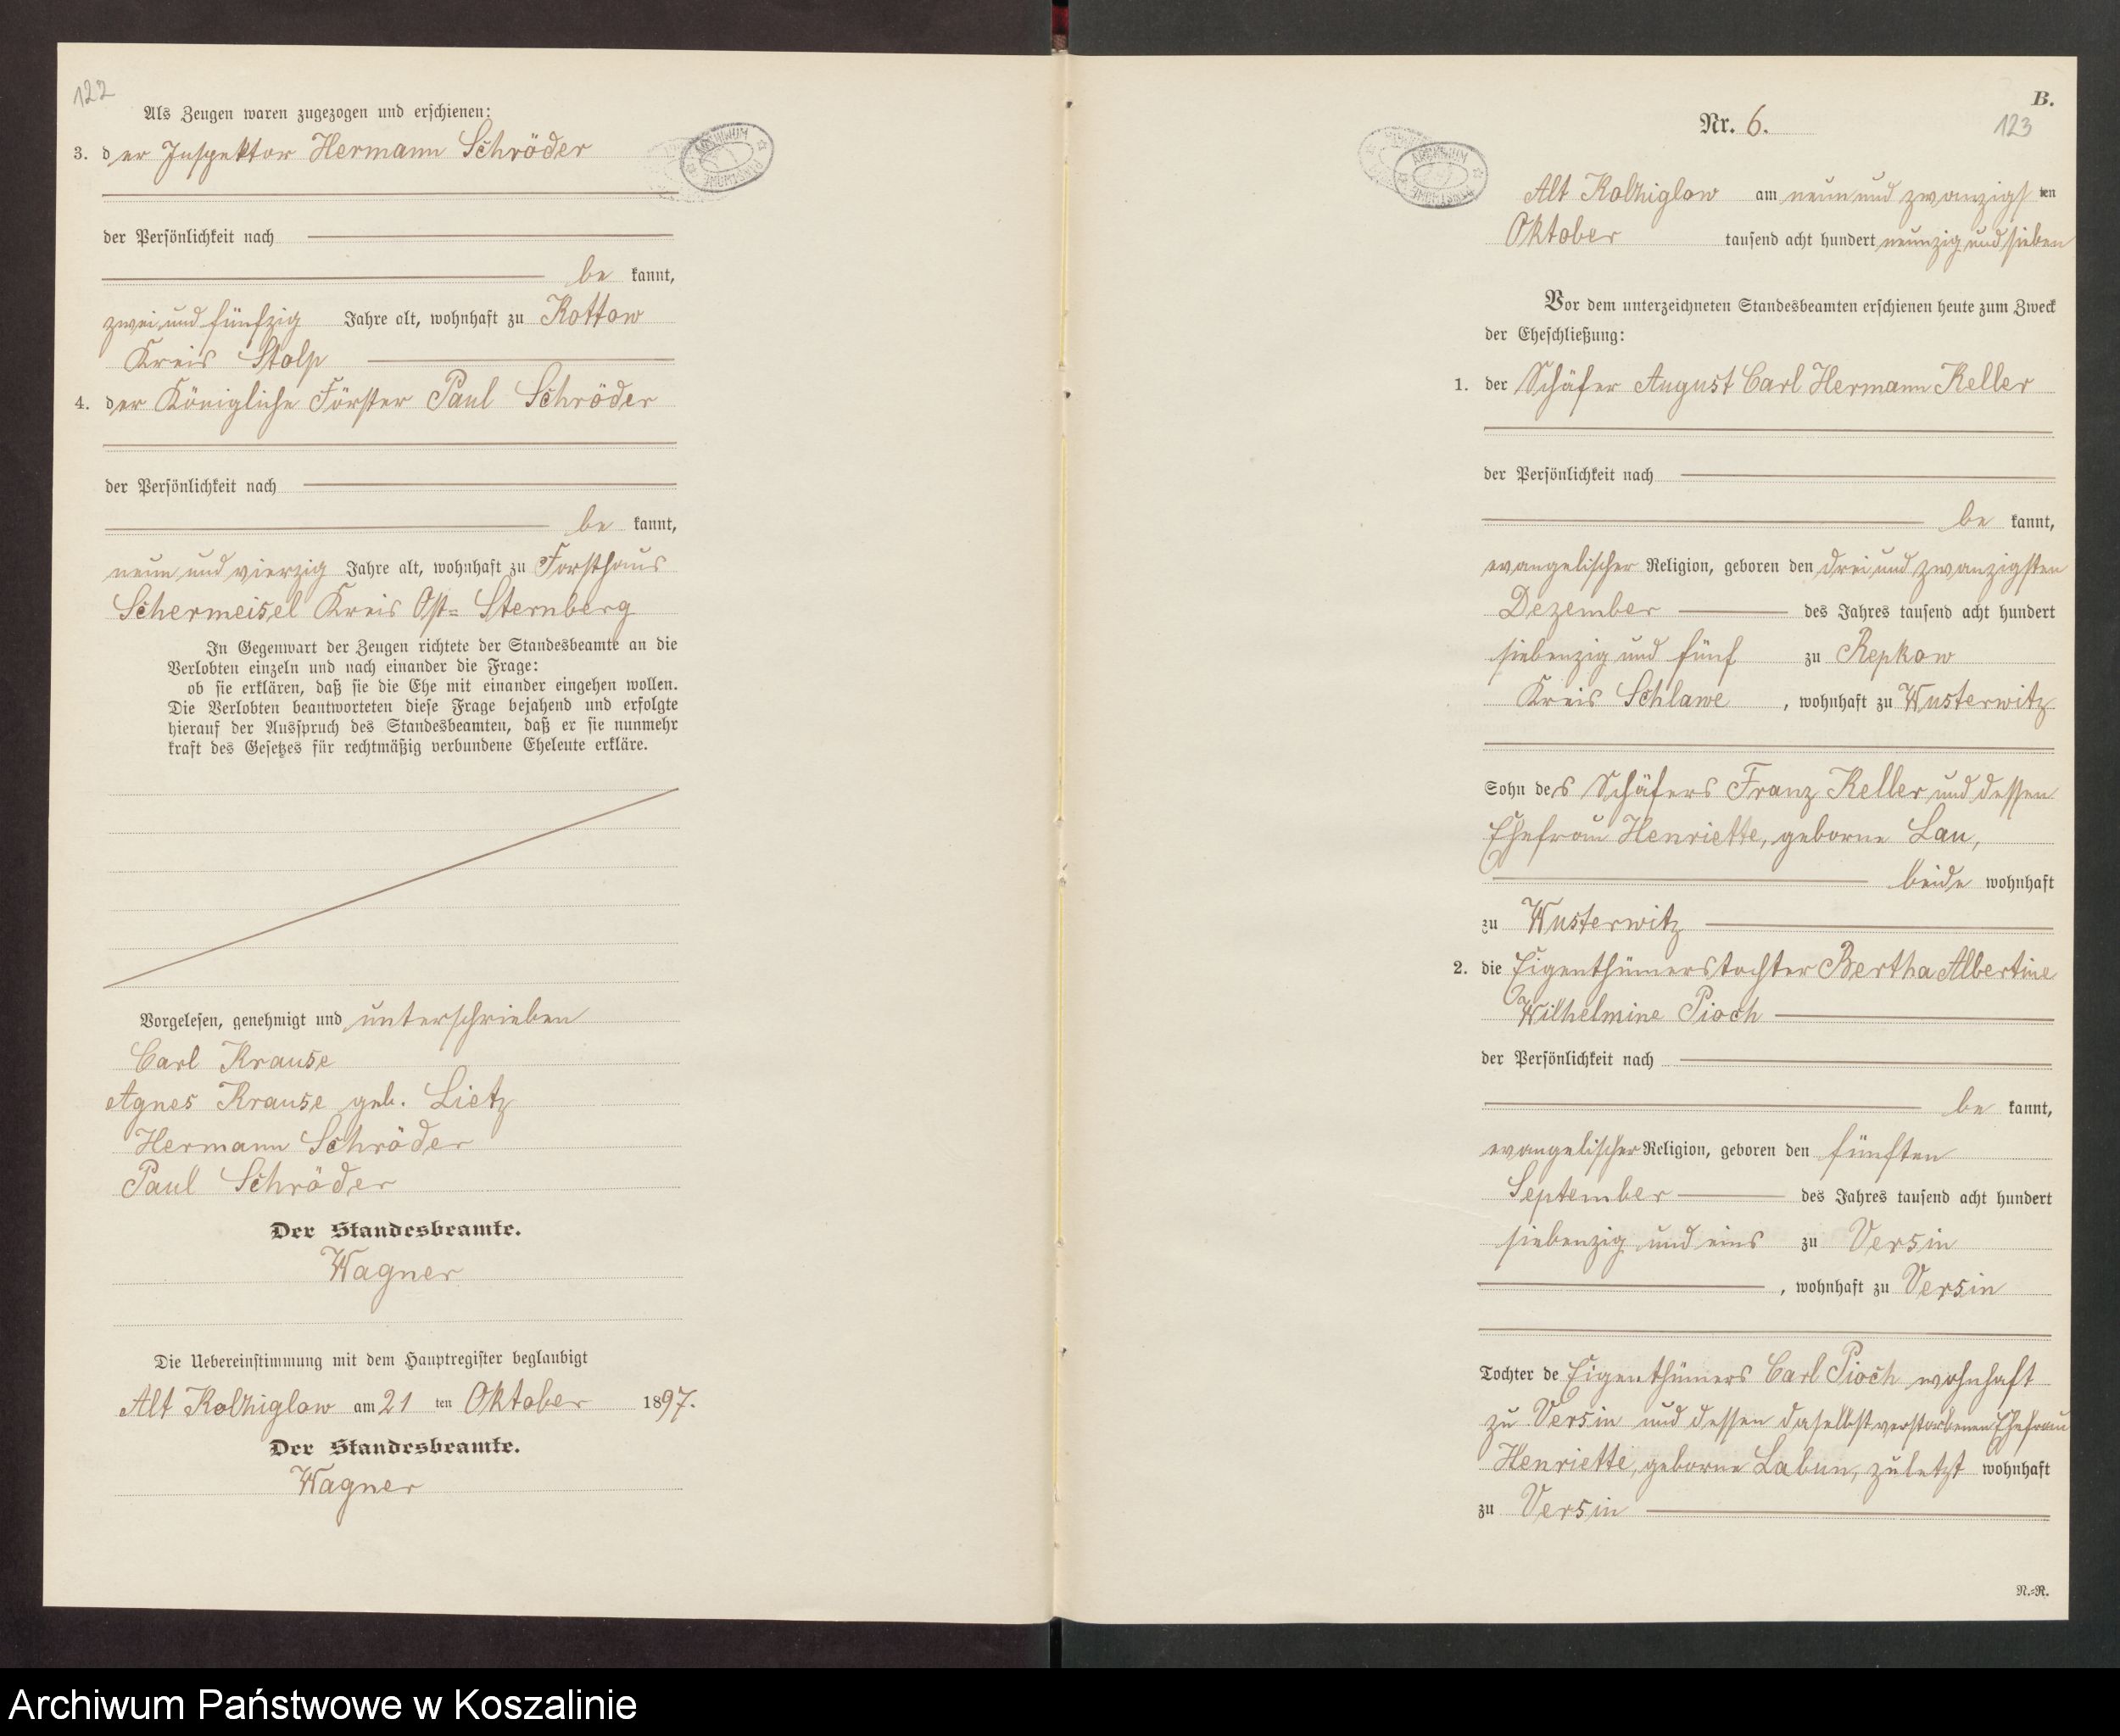 122
Als Zeugen waren zugezogen und erschienen:
3. der Inspektor Hermann Schröder
der Persönlichkeit nach
be kannt,
zwei und fünfzig Jahre alt, wohnhaft zu Rottow
Kreis Stolp
4. der Königliche Förster Paul Schröder
der Persönlichkeit nach
be kannt,
neun und vierzig Jahre alt, wohnhaft zu Forsthaus
Schermeisel Kreis Ost-Sternberg
In Gegenwart der Zeugen richtete der Standesbeamte an die
Verlobten einzeln und nach einander die Frage:
ob sie erklären, daß sie die Ehe mit einander eingehen wollen.
Die Verlobten beantworteten diese Frage bejahend und erfolgte
hierauf der Ausspruch des Standesbeamten, daß er sie nunmehr
kraft des Gesetzes für rechtmäßig verbundene Eheleute erkläre.
Vorgelesen, genehmigt und unterschrieben
Carl Krause
Agnes Krause geb. Lietz
Hermann Schröder
Paul Schröder
Der Standesbeamte.
Wagner
Die Uebereinstimmung mit dem Hauptregister beglaubigt
Alt Kolziglow am 21 ten Oktober 1897.
Der Standesbeamte.
Wagner
B.
Nr. 6.
123
Alt Kolziglow am neun und zwanzigsten
Oktober tausend acht hundert neunzig und sieben
Vor dem unterzeichneten Standesbeamten erschienen heute zum Zweck
der Eheschließung:
1. der Schäfer August Carl Hermann Keller
der Persönlichkeit nach
be kannt,
evangelischer Religion, geboren den drei und zwanzigsten
Dezember des Jahres tausend acht hundert
siebenzig und fünf zu Repkow
Kreis Schlawe, wohnhaft zu Wusterwitz
Sohn des Schäfers Franz Keller und dessen
Ehefrau Henriette, geborne Lau,
beide wohnhaft
zu Wusterwitz
2. die Eigenthümerstochter Bertha Albertine
Wilhelmine Pioch
der Persönlichkeit nach
be kannt,
evangelischer Religion, geboren den fünften
September des Jahres tausend acht hundert
siebenzig und eins zu Versin
, wohnhaft zu Versin
Tochter de Eigenthümers Carl Pioch wohnhaft
zu Versin und dessen daselbst verstorbenen Ehefrau
Henriette, geborne Labun, zuletzt wohnhaft
zu Versin
N.=R.
Archiwum Państwowe w Koszalinie